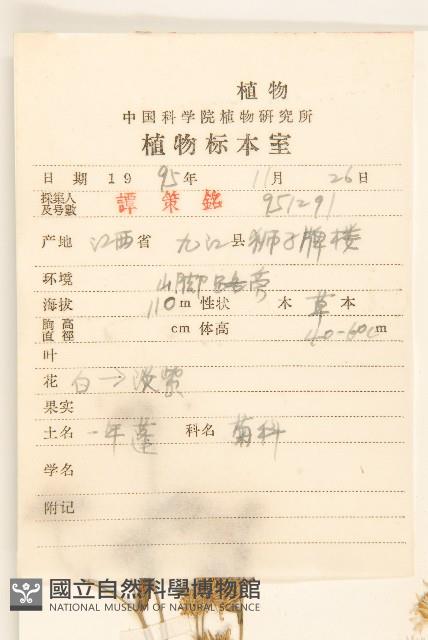 植物
中国科学院植物研究所
植物标本室
日期 1995年 11月 26日
採集人及号數 譚策銘 951291
产地 江西省 九江县 狮子牌楼
环境 山脚路旁
海拔 110m 性状 木 草本
胸高直徑 cm 体高 40-60cm
叶
花 白→淡紫
果实
土名 一年蓬 科名 菊科
学名
附记
國立自然科學博物館
NATIONAL MUSEUM OF NATURAL SCIENCE